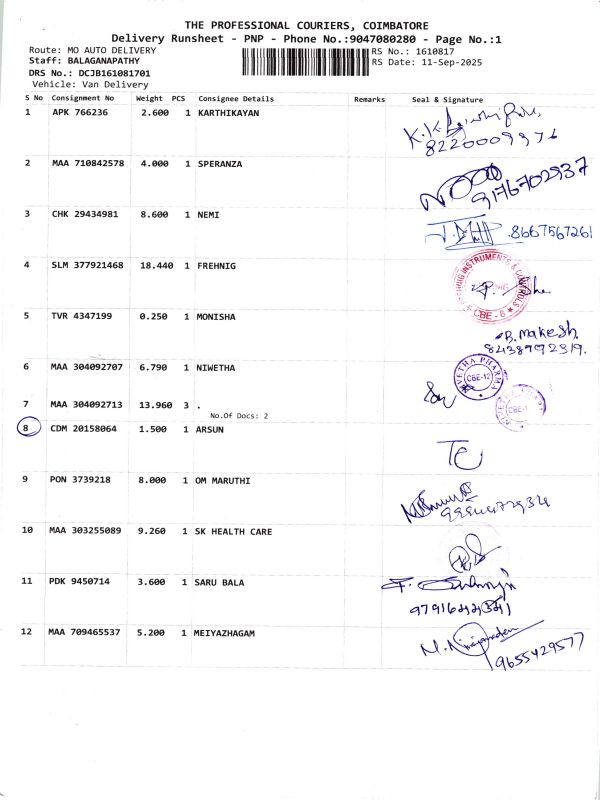 THE PROFESSIONAL COURIERS, COIMBATORE
Delivery Runsheet - PNP - Phone No.:9047080280 - Page No.:1
Route: MO AUTO DELIVERY
RS No.: 1610817
Staff: BALAGANAPATHY
RS Date: 11-Sep-2025
DRS No.: DCJB161081701
Vehicle: Van Delivery
S No Consignment No Weight PCS Consignee Details Remarks Seal & Signature
1 APK 766236 2.600 1 KARTHIKAYAN
8220009976
2 MAA 710842578 4.000 1 SPERANZA
9176702937
3 CHK 29434981 8.600 1 NEMI
8667567261
4 SLM 377921468 18.440 1 FREHNIG
INSTRUMENTS & CONTROLS
CBE - 6
5 TVR 4347199 0.250 1 MONISHA
B. Makesh
8438992319.
6 MAA 304092707 6.790 1 NIWETHA
VETHA PHARMA
CBE-12
7 MAA 304092713 13.960 3 .
No.Of Docs: 2
8 CDM 20158064 1.500 1 ARSUN
9 PON 3739218 8.000 1 OM MARUTHI
10 MAA 303255089 9.260 1 SK HEALTH CARE
11 PDK 9450714 3.600 1 SARU BALA
12 MAA 709465537 5.200 1 MEIYAZHAGAM
9655429577